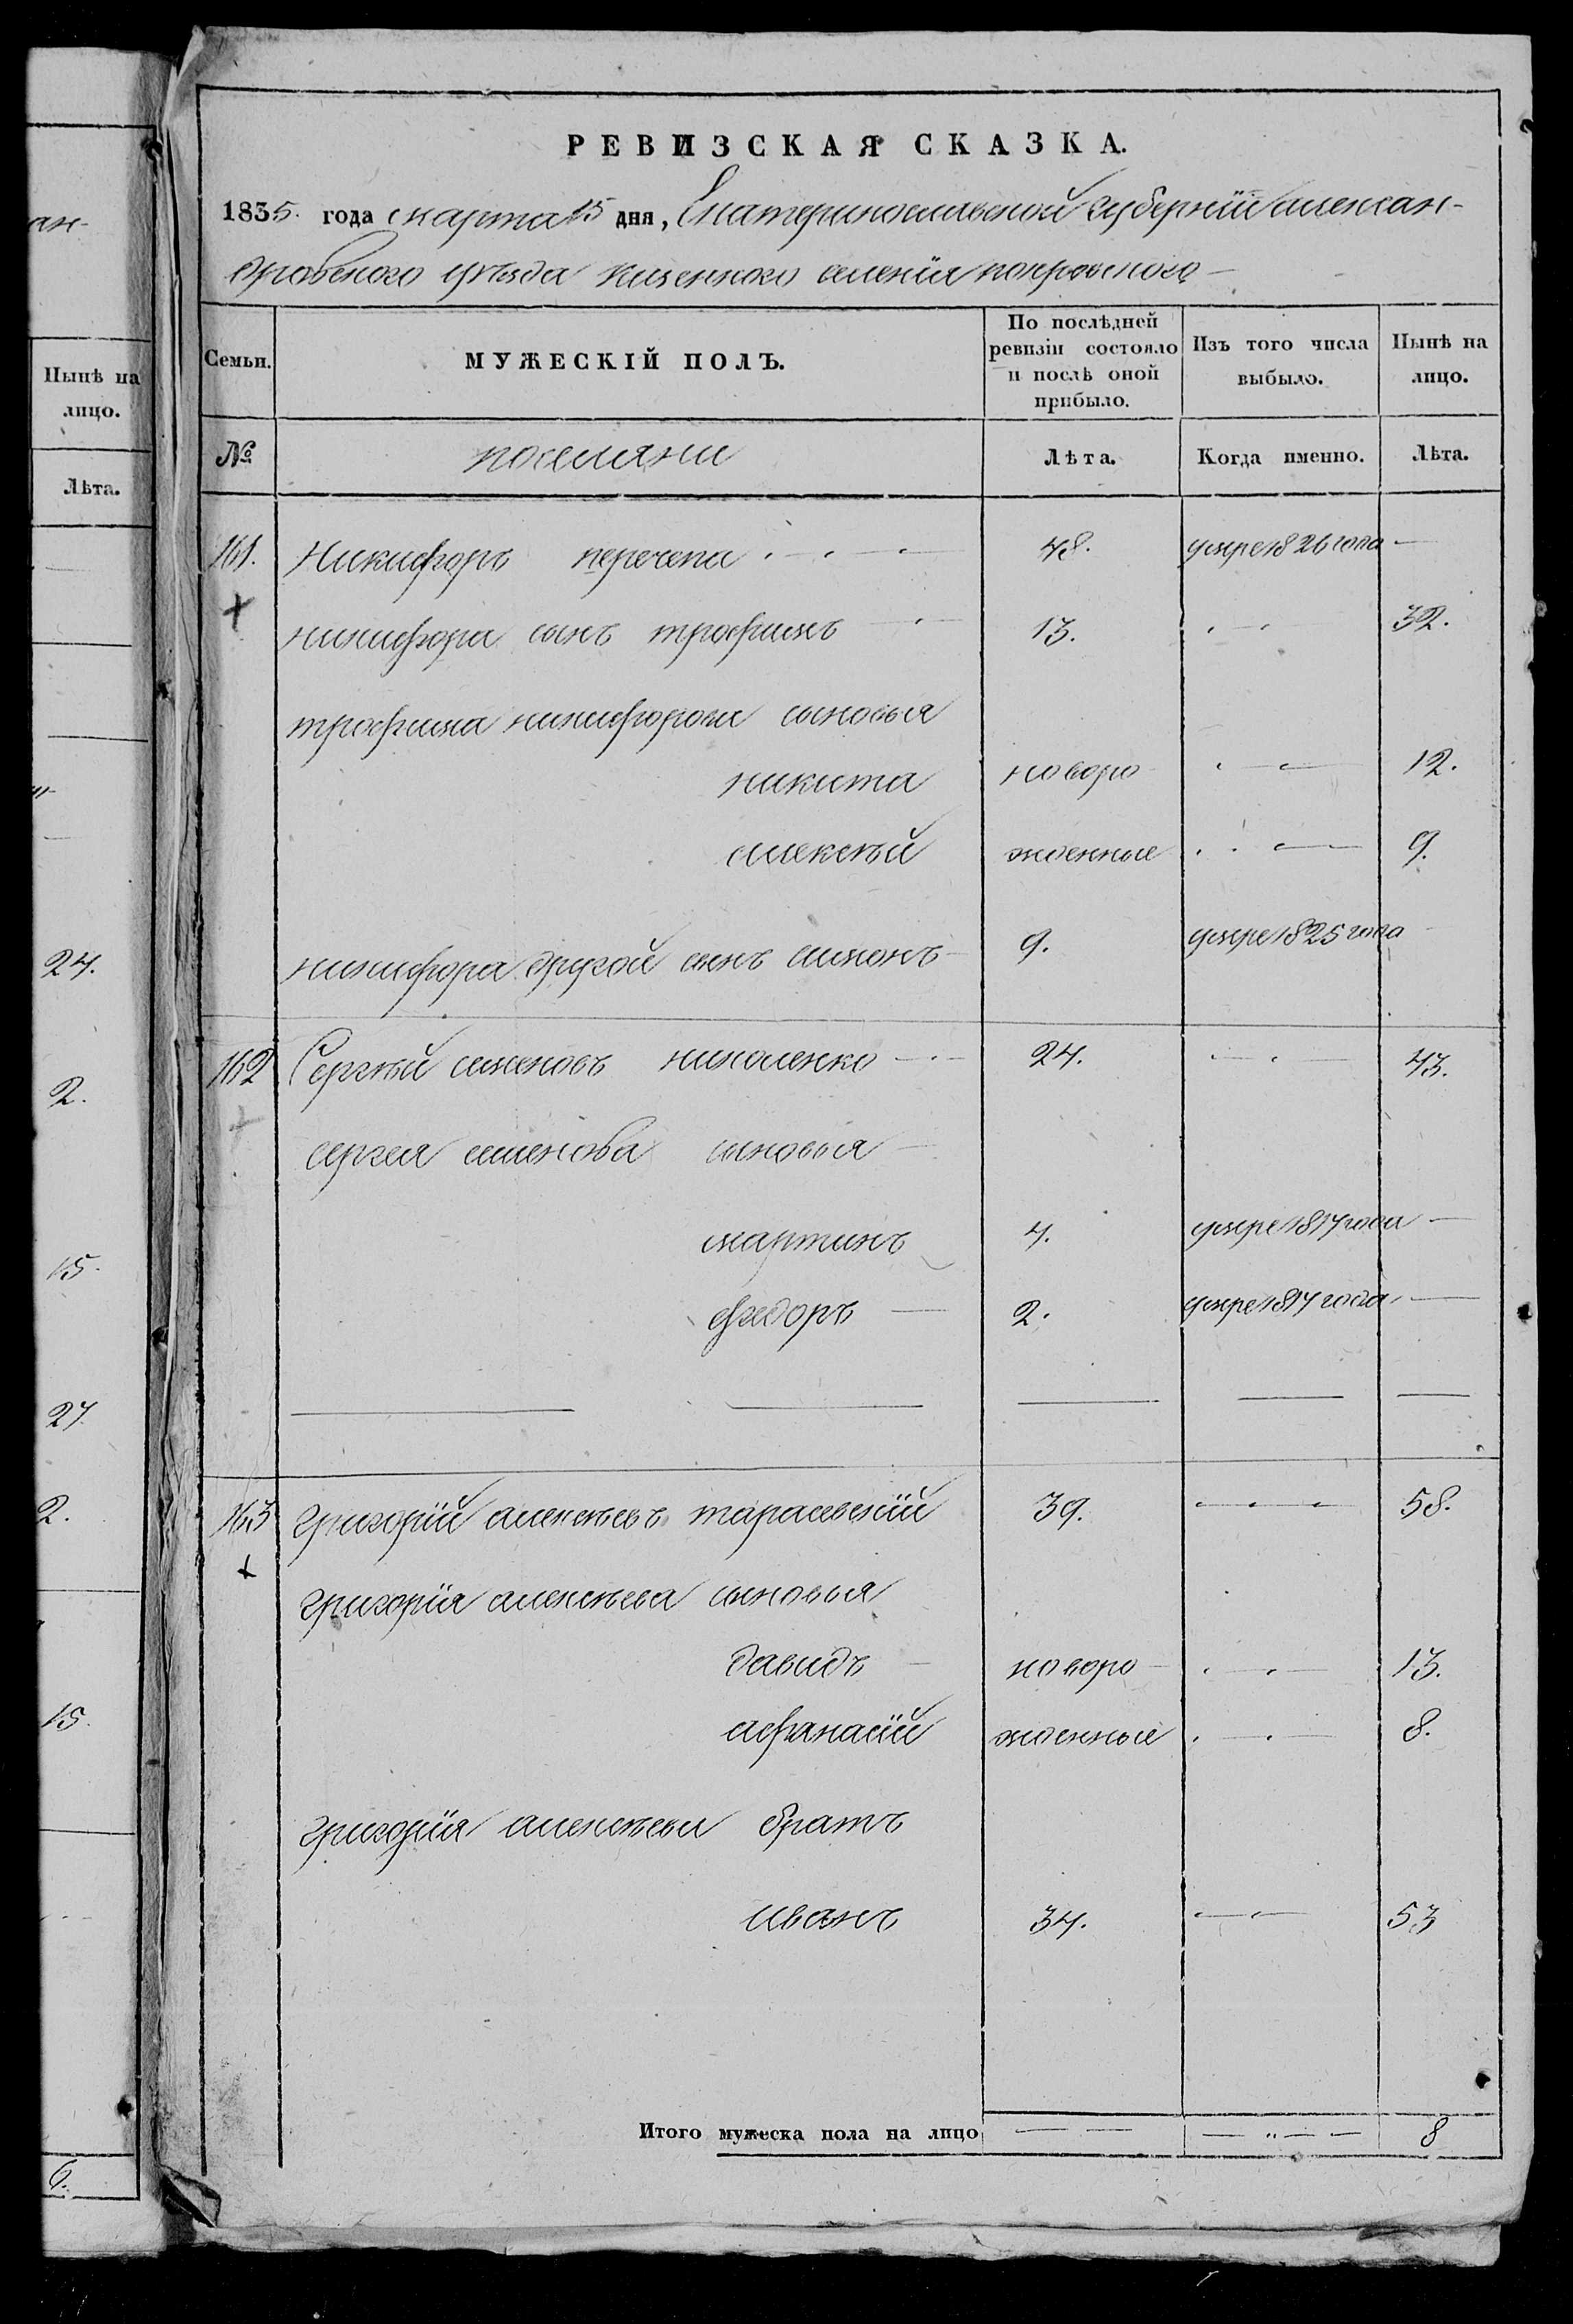 РЕВИЗСКАЯ СКАЗКА.
1835. года марта 15 дня, Екатеринославской губернии александ-
ровского уѣзда казенного селения покровского
Семьи. МУЖЕСКІЙ ПОЛЪ. По послѣдней ревизіи состояло и послѣ оной прибыло. Изъ того числа выбыло. Нынѣ на лицо.
№ поселяни Лѣта. Когда именно. Лѣта.
161. Никифоръ перечепа 48. умре 1826 года
никифора сынъ трофимъ 13. 32.
трофима никифорова сыновья
никита новоро 12.
алексѣй жденные 9.
никифора другой сынъ симонъ 9. умре 1825 года
162 Сергѣй семеновъ николенко 24. 43.
сергея семенова сыновья
мартинъ 4. умре 1817 года
федоръ 2. умре 1817 года
163 григорій алексѣевъ тарасевскій 39. 58.
григорія алексѣева сыновья
давидъ новоро 13.
афанасій жденные 8.
григорія алексѣева братъ
иванъ 34. 53
Итого мужеска пола на лицо 8
ан-
Нынѣ на
лицо.
Лѣта.
24.
2.
15.
27
2.
15.
6.